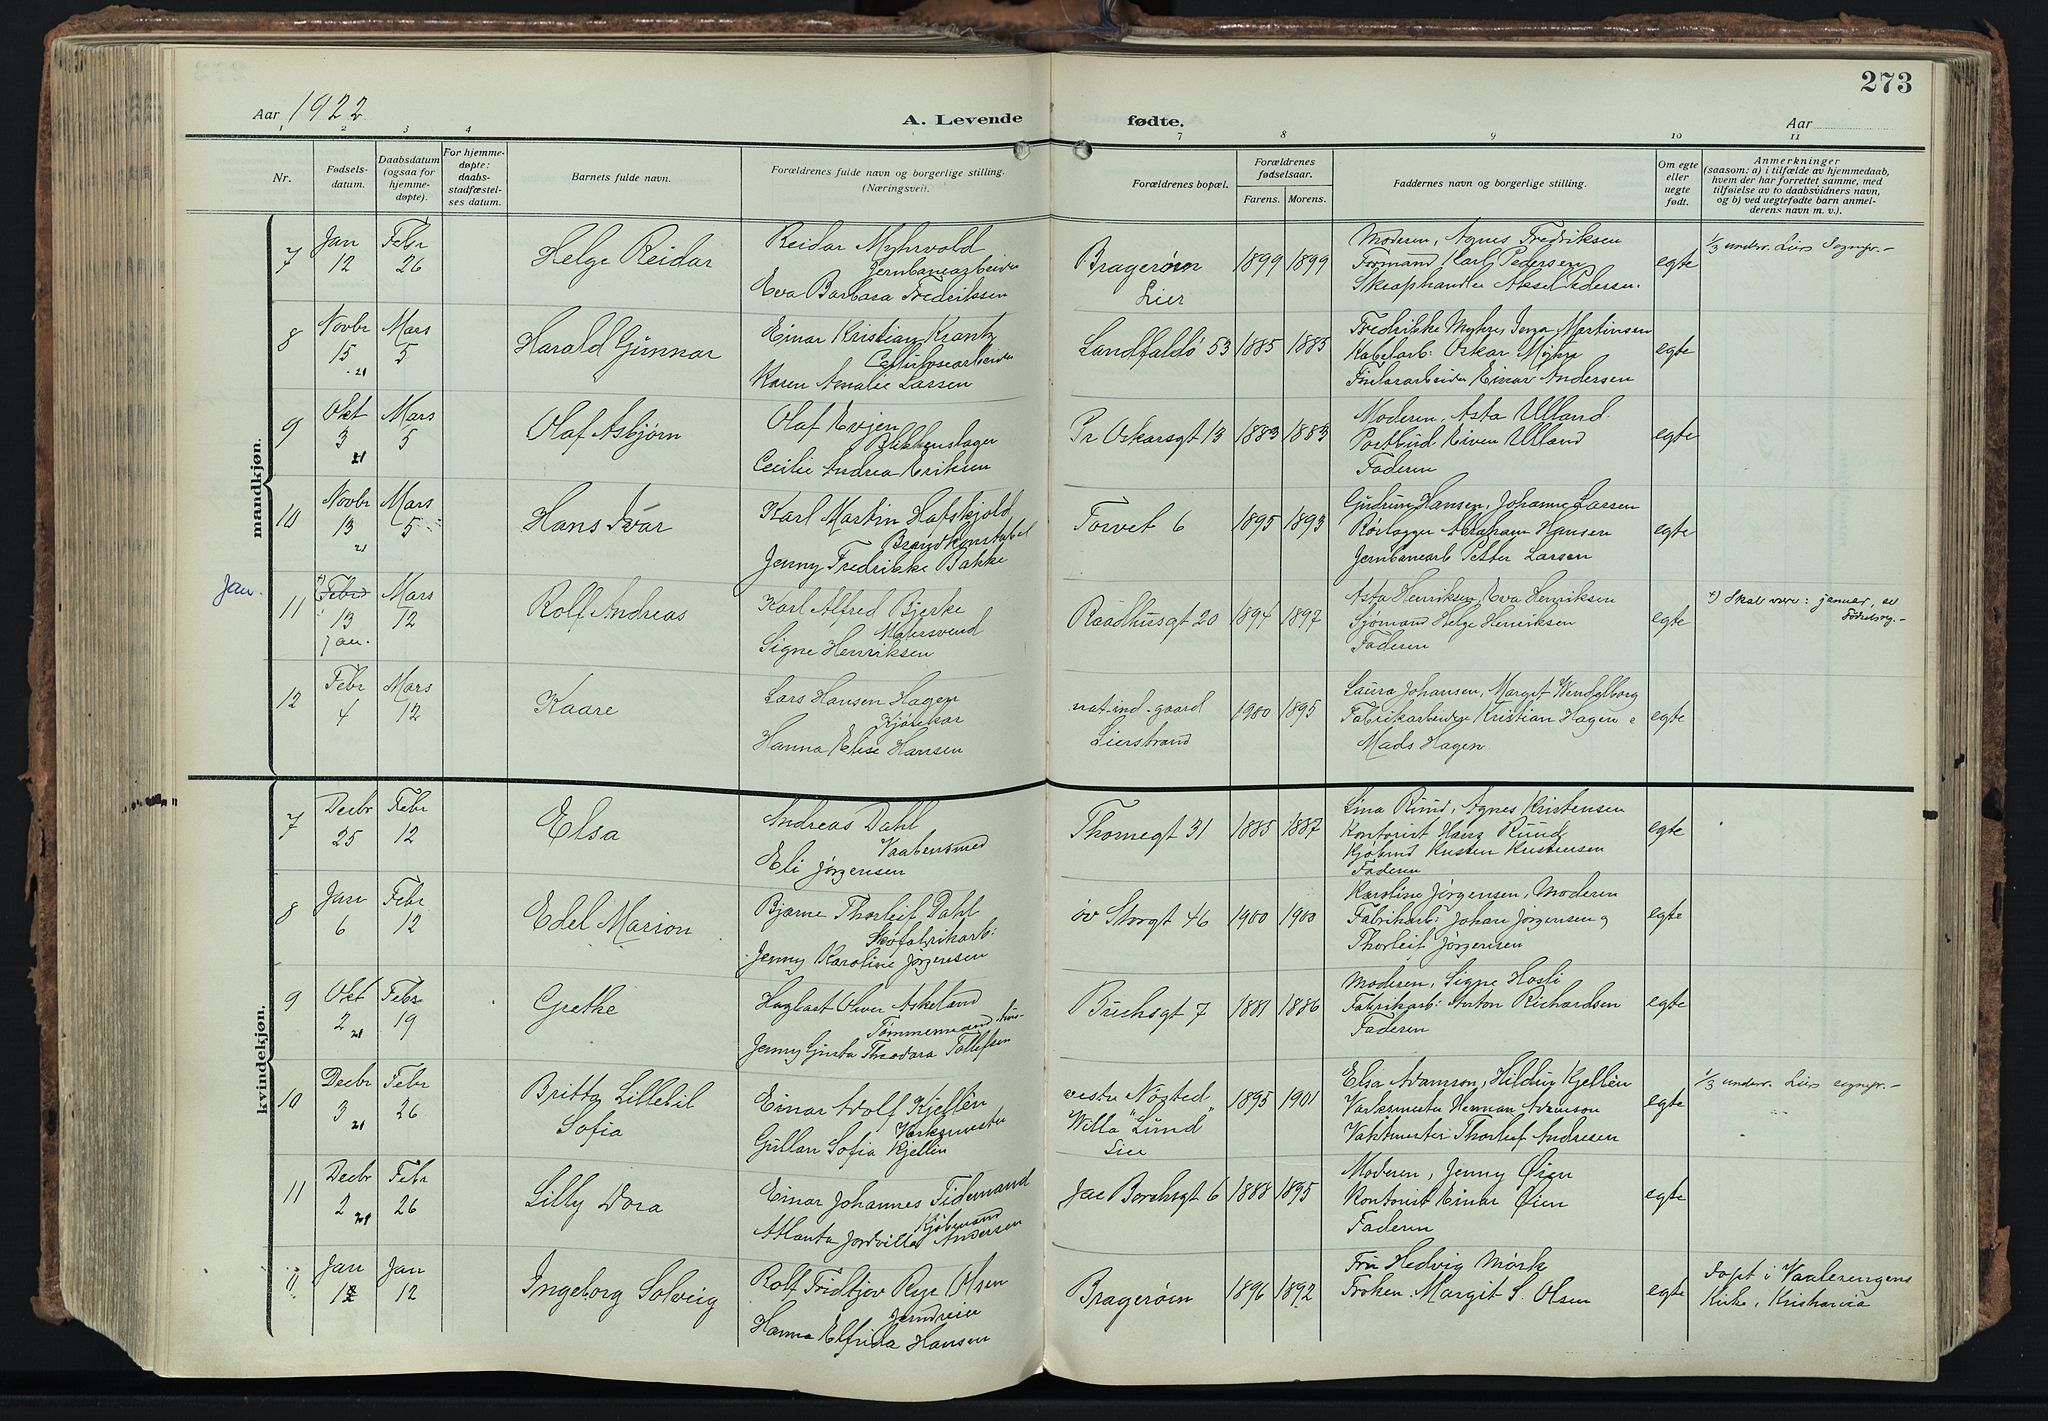 273
Aar 1922
A. Levende fødte.
Aar
1 2 3 4 7 8 9 10 11
Nr.
Fødsels-
datum.
Daabsdatum
(ogsaa for
hjemme-
døpte).
For hjemme-
døpte:
daabs-
stadfæstel-
ses datum.
Barnets fulde navn.
Forældrenes fulde navn og borgerlige stilling.
(Næringsvei).
Forældrenes bopæl.
Forældrenes
fødselsaar.
Farens. Morens.
Faddernes navn og borgerlige stilling.
Om egte
eller
uegte
født.
Anmerkninger
(saasom: a) i tilfælde av hjemmedaab,
hvem der har forrettet samme, med
tilføielse av to daabsvidners navn,
og b) ved uegtefødte barn anmel-
derens navn m. v.).
mandkjøn.
7
Jan
12
Febr
26
Helge Reidar
Reidar Myhrvold
Jernbanearbeider
Eva Barbara Fredriksen
Bragerøen
Lier
1899 1899
Moderen, Agnes Fredriksen
Formand Karl Pedersen
Skraphandler Aksel Pedersen.
egte
1/3 underr. Liers Sognepr.-
8
Novbr
15
21
Mars
5
Harald Gunnar
Einar Kristian Krantz
Cellulosearbeider
Karen Amalie Larsen
Landfaldø 53
1885 1885
Fredrikke Myhre, Jenza Martinsen
Kabelarb: Oskar Myhre
Einar Andersen
egte
9
Okt
3
21
Mars
5
Olaf Asbjørn
Olaf Evjen
Blikkenslager
Cecilie Andrea Eriksen
Pr Oskarsgt 13
1883 1883
Moderen, Asta Ulland.
Postbud Eiven Ulland
Faderen
egte
10
Novbr
13
21
Mars
5
Hans Ivar
Karl Martin Hafskjold
Brandkonstabel
Jenny Fredrikke Bakke
Torvet 6
1895 1893
Gudrun Hansen, Johanne Larsen
Rørlægger Abraham Hansen
Jernbanearb Petter Larsen
egte
Jan.
11
+) Febr
13
jan.
Mars
12
Rolf Andreas
Karl Alfred Bjerke
Malersvend
Signe Henriksen
Raadhusgt 20
1894 1897
Asta Henriksen, Eva Henriksen
Sjømand Helge Henriksen
Faderen
egte
+) Skal være: januar, se
Fødselsreg.-
12
Febr
4
Mars
12
Kaare
Lars Hansen Hagen
Kjørekar
Hanna Elise Hansen
nat-ind-gaard
Lierstrand
1900 1895
Laura Johansen, Margit Wendelborg
Fabrikarbeider Kristian Hagen o
Mads Hagen.
egte
kvindekjøn.
7
Decbr
25
Febr
12
Elsa
Andreas Dahl
Vaabensmed
Eli Jørgensen
Thornegt 31
1885 1887
Lina Rund, Agnes Kristensen
Kontorist Hans Rund
Kjøbmd Kristen Kristensen
Faderen
egte
8
Jan
6
Febr
12
Edel Marion
Bjarne Thorleif Dahl
Skofabrikarb:
Jenny Karoline Jørgensen
øv Storgt 46
1900 1900
Karoline Jørgensen, Moderen
Fabrikarb: Johan Jørgensen og
Thorleif Jørgensen
egte
9
Okt
2
21
Febr
19
Grethe
Olver Askeland
Tømmermand
Jenny Gusta Theodora Tollefsen
Buchsgt 7
1881 1886
Moderen, Signe Hosli
Fabrikarb: Anton Richardsen
Faderen
egte
10
Decbr
3
21
Febr
26
Britta Lillebil
Sofia
Einar Adolf Kjellèn
Værksmester
Gullan Sofia Kjellèn
vestre Nøsted
Willa "Lund"
Lier
1895 1901
Elsa Adamson, Hildur Kjellèn
Værksmester Herman Adamson
Vaktmester Thorleif Andresen
egte
1/3 underr. Liers sognepr.-
11
Decbr
2
21
Febr
26
Lilly Dora
Einar Johannes Tidemand
Kjøbmand
Atlanta Jordville Andersen
Jac Borchsgt 6
1888 1895
Moderen, Jenny Øien
Kontorist Einar Øien
Faderen
egte
11
Jan
1
Jan
12
Ingeborg Solveig
Rolf Fridtjov Rye Olsen
Jerndreier
Hanna Elfrida Hansen
Bragerøen
1896 1892
Fru Hedvig Mørk
Frøken Margit S. Olsen
egte
Døpt i Vaalerengens
Kirke, Kristiania